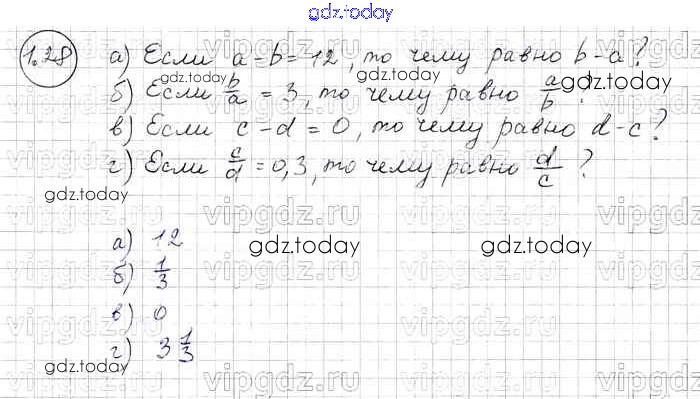 gdz.today
1.28 а) Если a-b=12, то чему равно b-a?
gdz.today gdz.today gdz.today
б) Если b/a = 3, то чему равно a/b ?
в) Если c-d=0, то чему равно d-c?
г) Если c/d = 0,3, то чему равно d/c ?
gdz.today
vipgdz.ru vipgdz.ru
а) 12
gdz.today gdz.today
б) 1/3
vipgdz.ru vipgdz.ru
в) 0
г) 3 1/3
gdz.today
vipgdz.ru vipgdz.ru vipgdz.ru